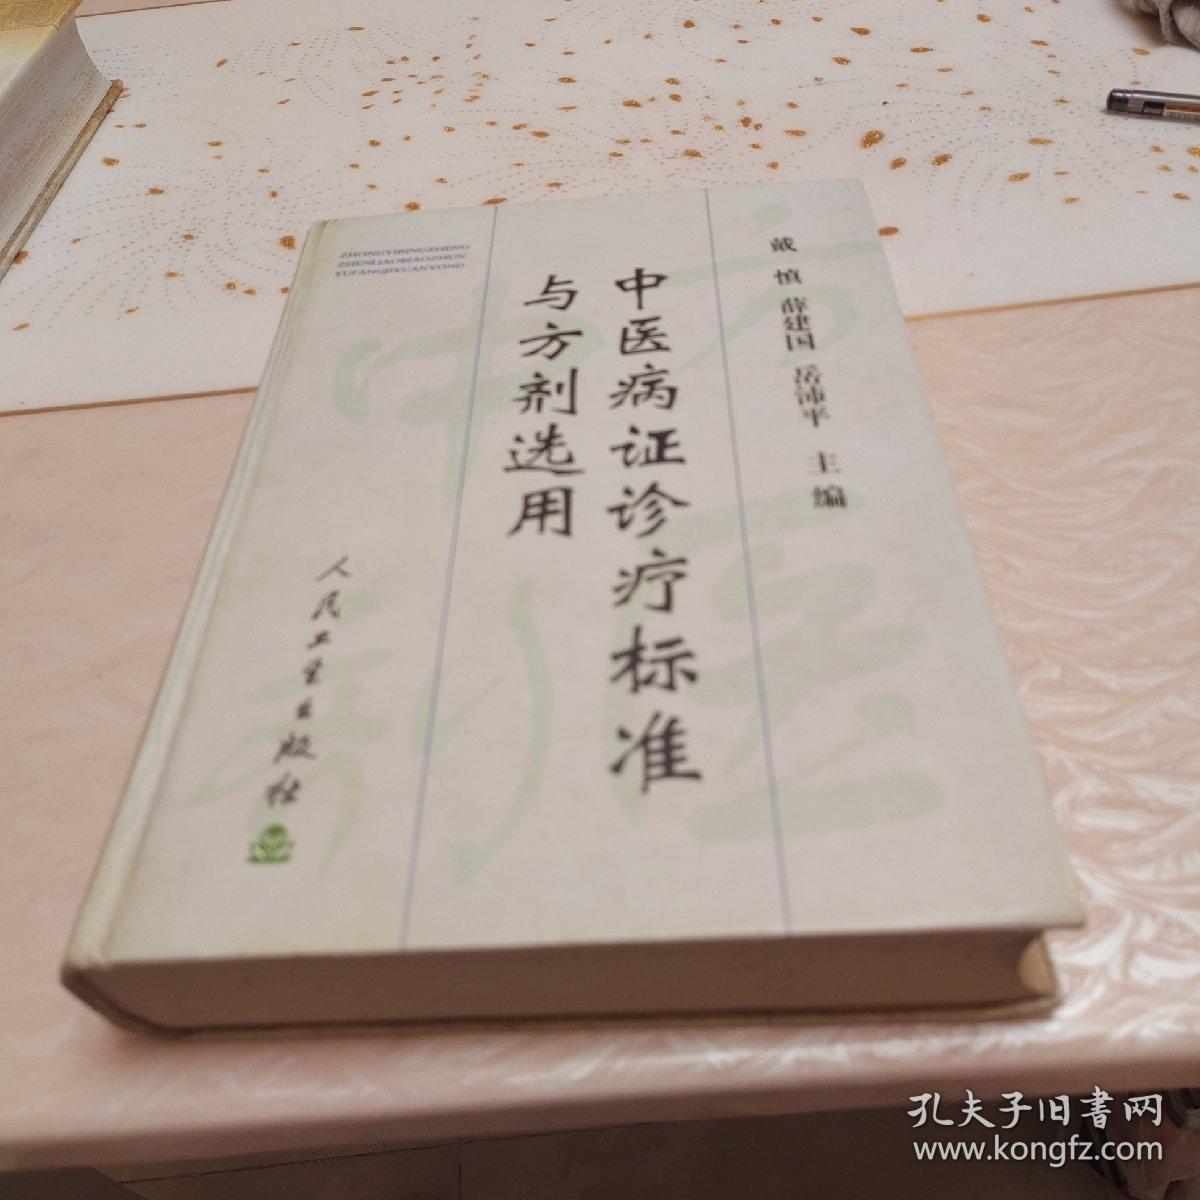 戴 慎 薛建国 岳沛平 主编
中医病证诊疗标准
与方剂选用
ZHONGYIBINGZHENG
ZHENLIAOBIAOZHUN
YUFANGJIXUANYONG
人民卫生出版社
孔夫子旧書网
www.kongfz.com